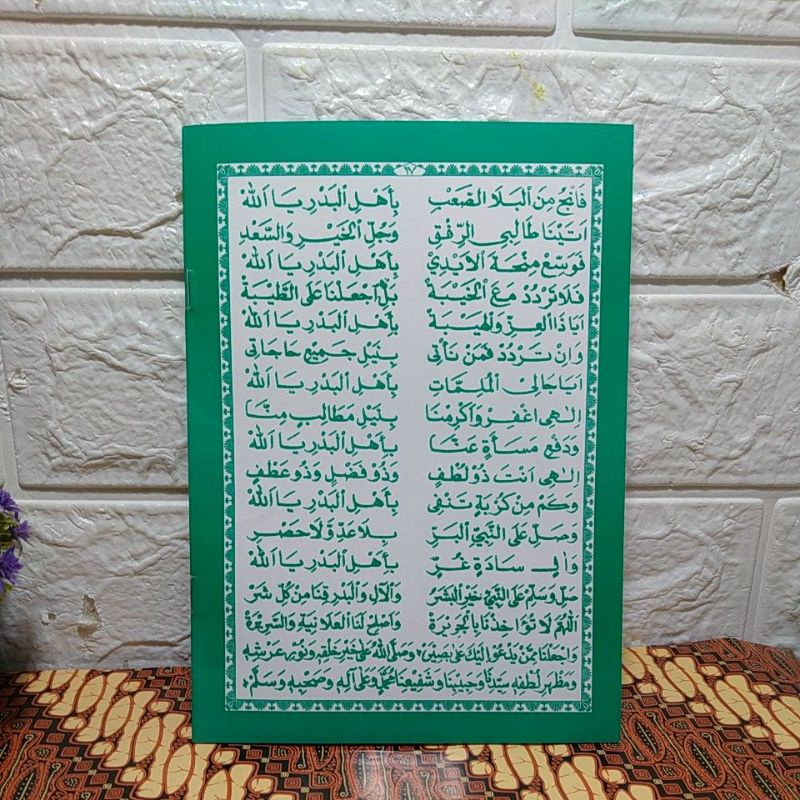 ١٧
فَانْجُ مِنَ الْبَلَا الصَّعْبِ بِأَهْلِ الْبَدْرِ يَا اَللهُ
اَتَيْنَا طَالِبِي الرِّفْقِ وَجُلِّ الْخَيْرِ وَالسَّعْدِ
فَوَسِّعْ مِنْحَةَ الْاَيْدِيْ بِأَهْلِ الْبَدْرِ يَا اَللهُ
فَلَا تَرْدُدْ مَعَ الْخَيْبَةْ بَلِ اجْعَلْنَا عَلَى الطَّيْبَةْ
اَيَا ذَا الْعِزِّ وَالْهَيْبَةْ بِأَهْلِ الْبَدْرِ يَا اَللهُ
وَاِنْ تَرْدُدْ فَمَنْ نَأْتِى بِنَيْلِ جَمِيْعِ حَاجَاتِى
اَيَا جَالِى الْمُلِمَّاتِ بِأَهْلِ الْبَدْرِ يَا اَللهُ
اِلٰهِى اغْفِرْ وَاَكْرِمْنَا بِنَيْلِ مَطَالِبٍ مِنَّا
وَدَفْعِ مَسَاۤءَةٍ عَنَّا بِأَهْلِ الْبَدْرِ يَا اَللهُ
اِلٰهِى اَنْتَ ذُوْ لُطْفٍ وَذُوْ فَضْلٍ وَذُوْ عَطْفٍ
وَكَمْ مِنْ كُرْبَةٍ تَنْفِى بِأَهْلِ الْبَدْرِ يَا اَللهُ
وَصَلِّ عَلَى النَّبِيِّ الْبَرِّ بِلَا عَدٍّ وَلَا حَصْرِ
وَاٰلِ سَادَةٍ غُرِّ بِأَهْلِ الْبَدْرِ يَا اَللهُ
صَلِّ وَسَلِّمْ عَلَى النَّبِيْ خَيْرِ الْبَشَرْ وَالْاٰلِ وَالْبَدْرِ قِنَا مِنْ كُلِّ شَرْ
اَللّٰهُمَّ لَا تُؤَاخِذْنَا بِالْجَرِيْرَةْ وَاَصْلِحْ لَنَا الْعَلَانِيَةَ وَالسَّرِيْرَةْ
وَاجْعَلْنَا مِمَّنْ يَدْعُوْا اِلَيْكَ عَلَى بَصِيْرَةْ وَصَلَّى اللهُ عَلَى خَيْرِ خَلْقِهِ وَنُوْرِ عَرْشِهِ
وَمَظْهَرِ لُطْفِهِ سَيِّدِنَا وَحَبِيْبِنَا وَشَفِيْعِنَا مُحَمَّدٍ وَعَلَى اٰلِهِ وَصَحْبِهِ وَسَلَّمْ.